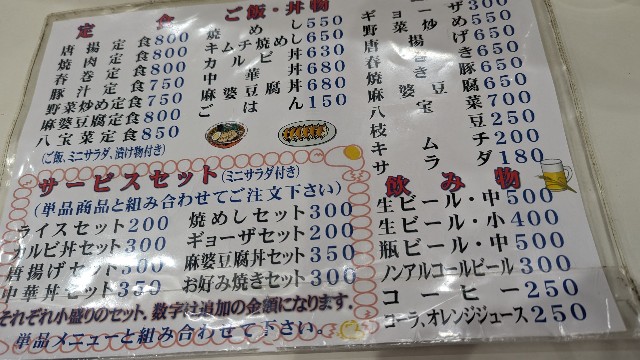 定食
唐揚定食800
焼肉定食800
春巻定食800
豚汁定食750
野菜炒め定食750
麻婆豆腐定食800
八宝菜定食850
(ご飯、ミニサラダ、漬け物付き)
ご飯・丼物
焼めし550
キムチ焼めし650
カルビ丼680
中華丼630
麻婆豆丼680
ごはん150
ギョーザ300
野菜炒め550
唐揚げ500
春巻き
焼豚650
麻婆豆腐650
八宝菜700
枝豆250
キムチ200
サラダ180
サービスセット(ミニサラダ付き)
(単品商品と組み合わせてご注文下さい)
ライスセット200
カルビ丼セット300
唐揚げセット300
中華丼セット350
焼めしセット300
ギョーザセット200
麻婆豆腐丼セット350
お好み焼きセット300
それぞれ小盛りのセット、数字は追加の金額になります。
単品メニューと組み合わせて下さい。
飲み物
生ビール・中500
生ビール・小400
瓶ビール・中500
ノンアルコールビール300
コーヒー250
コーラ、オレンジジュース250